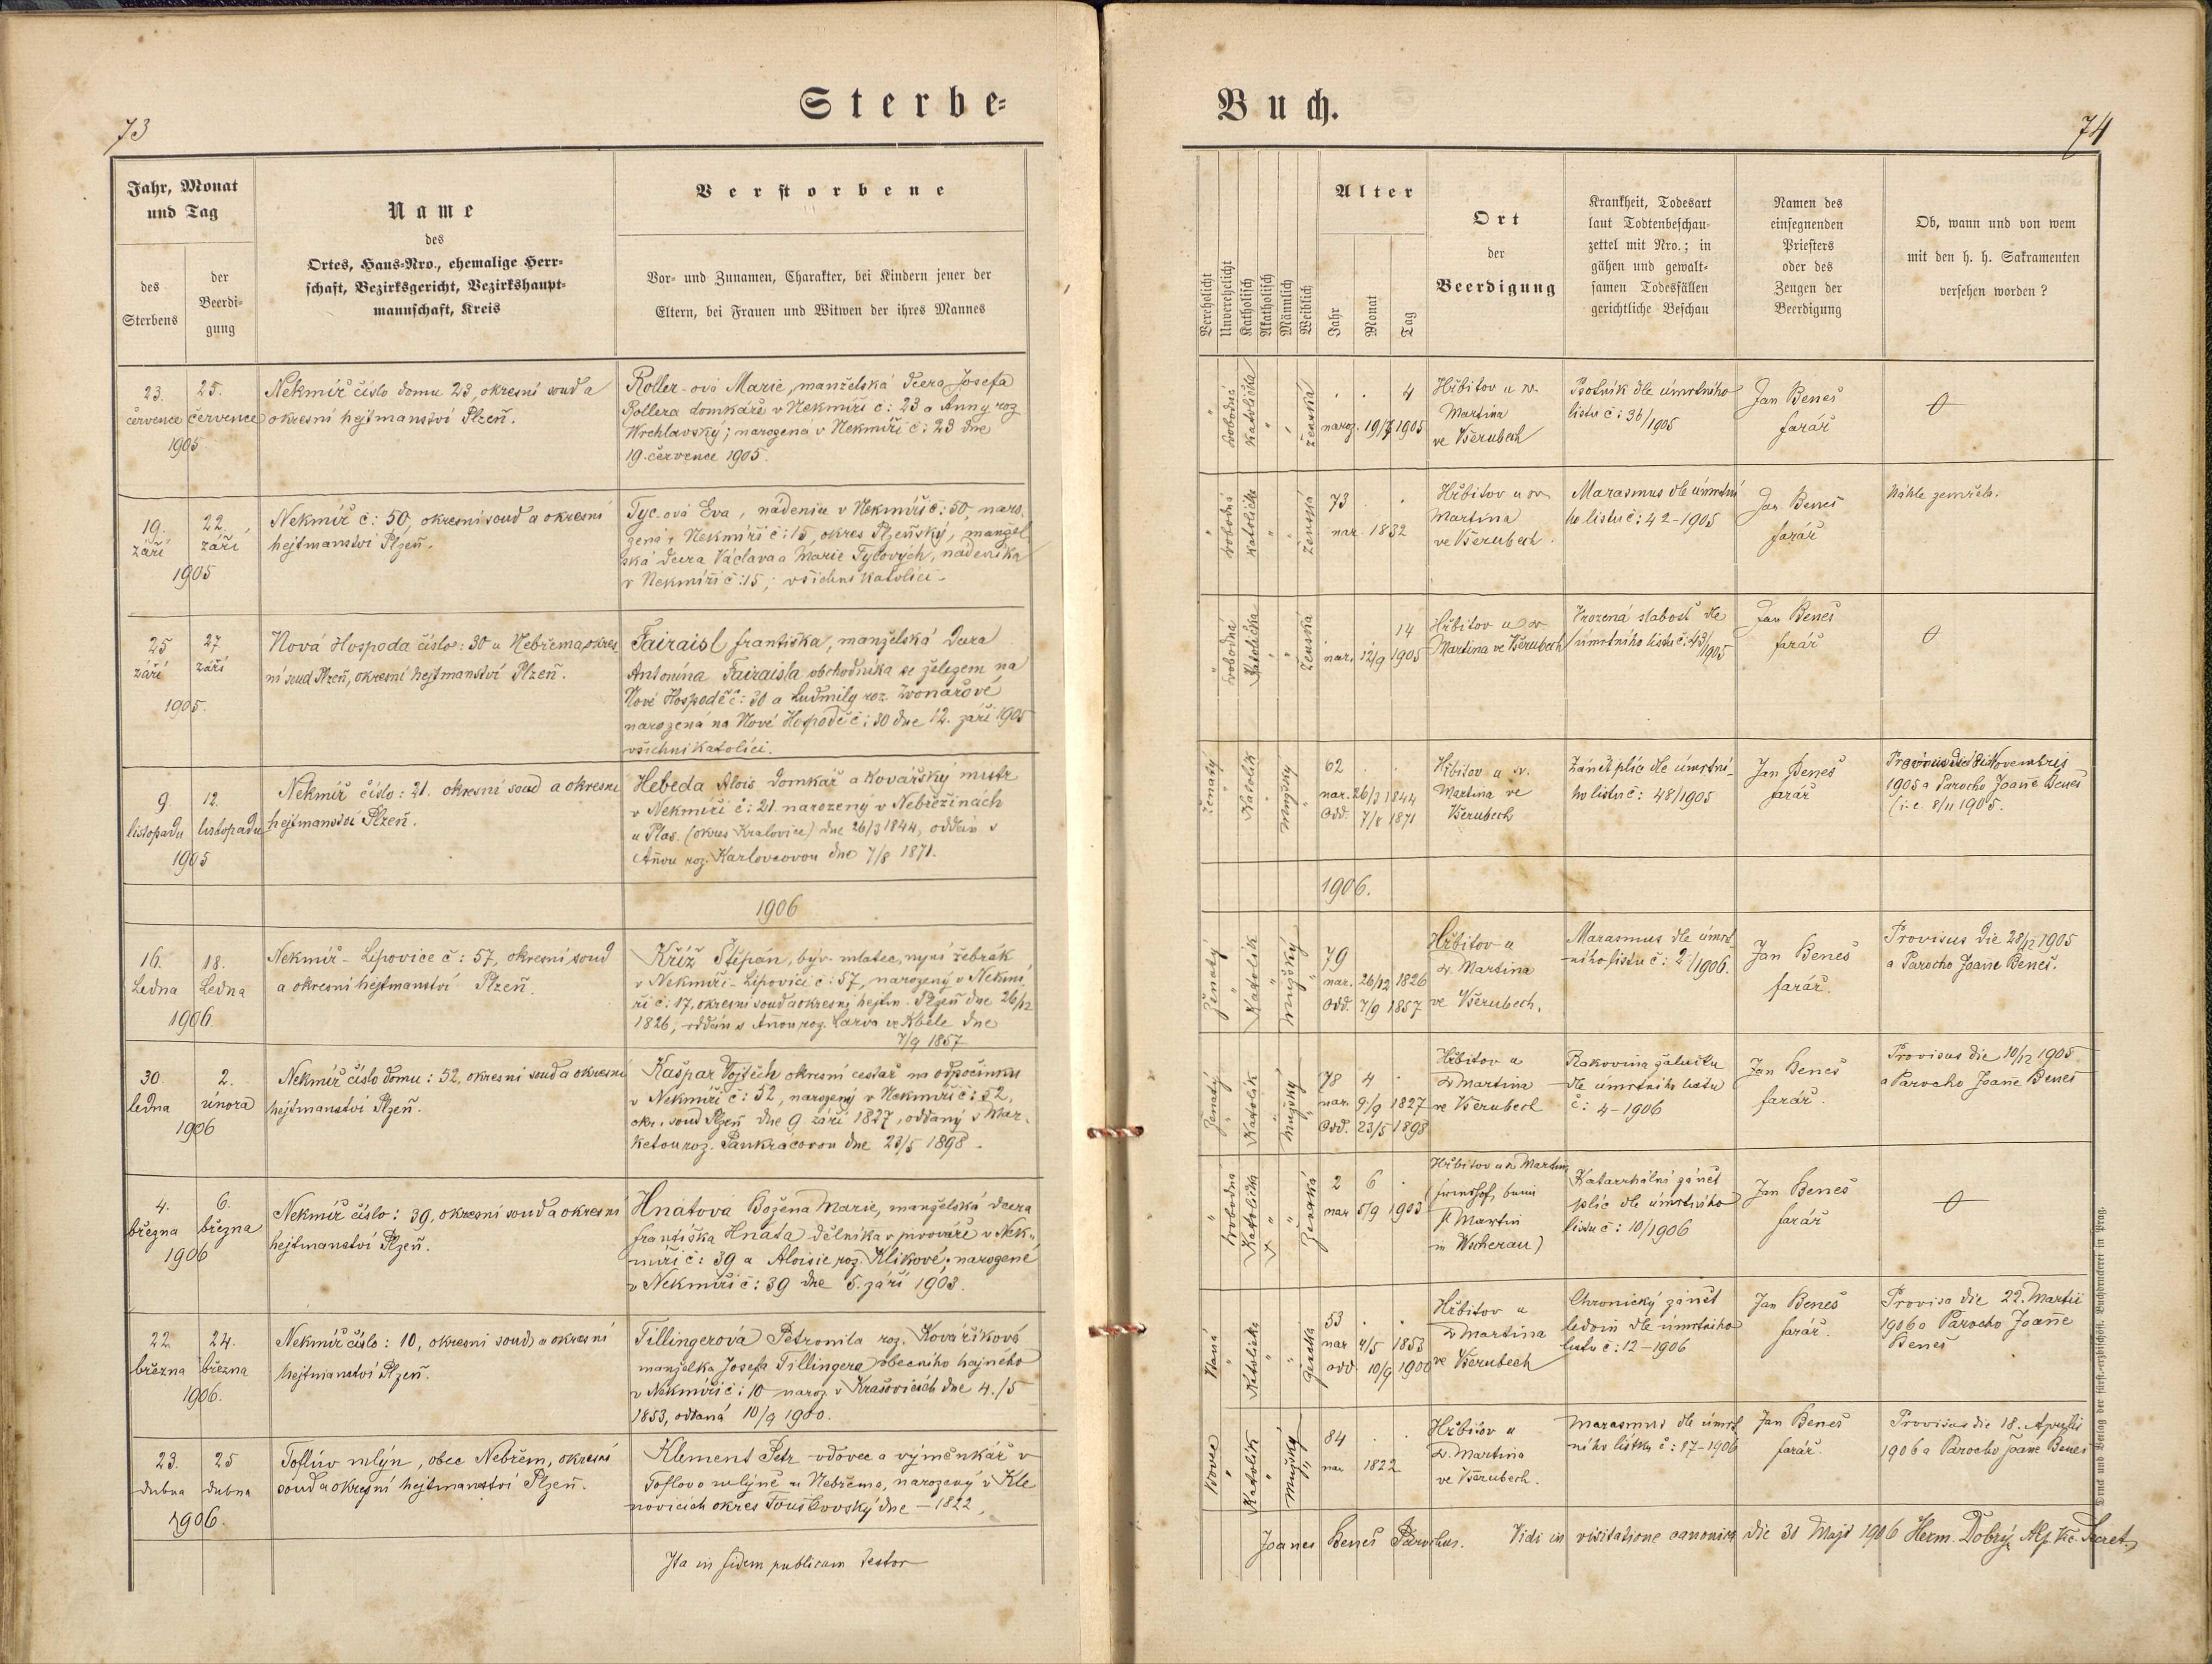 73
Sterbe=
Jahr, Monat
und Tag
des
Sterbens
der
Beerdi=
gung
Name
des
Ortes, Haus=Nro., ehemalige Herr=
schaft, Bezirksgericht, Bezirkshaupt=
mannschaft, Kreis
Verstorbene
Vor= und Zunamen, Charakter, bei Kindern jener der
Eltern, bei Frauen und Witwen der ihres Mannes
23. 25.
července července
1905
Nekmíř číslo domu 23, okresní soud a
okresní hejtmanství Plzeň.
Roller-ová Marie, manželská dcera Josefa
Rollera domkáře v Nekmíři č: 23 a Anny roz
narozena v Nekmíři č: 23 dne
19. července 1905.
19. 22.
září září
1905
Nekmíř č: 50, okresní soud a okresní
hejtmanství Plzeň.
Tyc.ová Eva, v Nekmíři č: 50, naro.
zená v Nekmíři č: 15, okres Plzeňský, manžel
ská dcera Václava a Marie Tycových, nádeníka
v Nekmíři č: 15; všichni katolíci.
25 27
září září
1905.
Nová Hospoda číslo: 30 u Nebřema, okres
ní soud Plzeň, okresní hejtmanství Plzeň.
Fairaisl Františka, manželská dcera
Antonína Fairaisla obchodníka se železem na
Nové Hospodě č: 30 a Ludmily roz. Zvonařové
narozená na Nové Hospodě č: 30 dne 12. září 1905
všichni katolíci.
9. 12.
listopadu listopadu
1905
Nekmíř číslo: 21. okresní soud a okresní
hejtmanství Plzeň.
Hebeda Alois domkář a kovářský mistr
v Nekmíři č: 21 narozený v Nebřežinách
u Plas. (okres Kralovice) dne 26/3 1844, oddán s
Annou roz. Karlovcovou dne 7/8 1871.
1906
16. 18.
Ledna Ledna
1906.
Nekmíř - Lipovice č: 57, okresní soud
a okresní hejtmanství Plzeň.
Kříž Štěpán, býv. mlatec, nyní žebrák
v Nekmíři-Lipovici č: 57, narozený v Nekmí
ři č: 17, okresní soud a okresní hejtm. Plzeň dne 26/12
1826, oddán s Annou roz. Larva ve Kbele dne
7/9 1857
30. 2.
ledna února
1906
Nekmíř číslo domu: 52, okresní soud a okresní
hejtmanství Plzeň.
Kašpar Vojtěch okresní cestář na odpočinku
v Nekmíři č: 52, narozený v Nekmíři č: 52,
okr. soud Plzeň dne 9. září 1827, oddaný s Mar.
ketou roz. Pankrácovou dne 23/5 1898.
4. 6.
března března
1906
Nekmíř číslo: 39, okresní soud a okresní
hejtmanství Plzeň.
Hnátová Božena Marie, manželská dcera
Františka Hnáta dělníka v pivováře v Nek„
míři č: 39 a Aloisie roz. Klikové; narozené
v Nekmíři č: 39 dne 5. září 1903.
22. 24.
března března
1906.
Nekmíř číslo: 10, okresní soud a okresní
hejtmanství Plzeň.
Tillingerová Petronila roz. Kovaříková
manželka Josefa Tillingera obecního hajného
v Nekmíři č: 10 naroz. v Krašovicích dne 4./5
1853, oddaná 10/9 1900.
23. 25
dubna dubna
1906.
Toflův mlýn, obec Nebřem, okresní
soud a okresní hejtmanství Plzeň.
Klement Petr vdovec a výměnkář v
Toflovo mlýně u Nebřema, narozený v Kle
novicích okres Touškovský dne — 1822.
Ita in fidem publicam testor
Buch.
74
Verehelicht
Unverehelicht
Katholisch
Akatholisch
Männlich
Weiblich
Alter
Jahr
Monat
Tag
Ort
der
Beerdigung
Krankheit, Todesart
laut Todtenbeschau=
zettel mit Nro.; in
gähen und gewalt=
samen Todesfällen
gerichtliche Beschau
Namen des
einsegnenden
Priesters
oder des
Zeugen der
Beerdigung
Ob, wann und von wem
mit den h. h. Sakramenten
versehen worden?
svobodná
Katolička
ženská
4
naroz. 19/7 1905
Hřbitov u sv.
Martina
ve Všerubech
Psotník dle úmrtního
listu č: 36/1905
Jan Beneš
farář
0
svobodná
Katolička
ženská
73
nar. 1832
Hřbitov u sv
Martina
ve Všerubech.
Marasmus dle úmrtní
ho listu č: 42-1905
Jan Beneš
farář
Náhle zemřela.
svobodná
Katolička
ženská
14
nar. 12/9 1905
Hřbitov u sv
Martina ve Všerubech
Vrozená slabost dle
úmrtního listu č: 43/1905
Jan Beneš
farář
0
Ženatý
Katolík
mužský
62
nar. 26/3 1844
Odd. 7/8 1871
Hřbitov u sv.
Martina ve
Všerubech
Zánět plic dle úmrtní-
ho listu č: 48/1905
Jan Beneš
farář
Novembris
1905 a Parocho Joanne Beneš
(i.e. 8/11 1905.
1906.
Ženatý
Katolík
mužský
79
nar. 26/12 1826
Odd. 7/9 1857
Hřbitov u
sv. Martina
ve Všerubech.
Marasmus dle úmrt
ního listu č: 2/1906.
Jan Beneš
farář.
Provisus die 28/12 1905
a Parocho Joanne Beneš.
Ženatý
Katolík
mužský
78 4
nar. 9/9 1827
Odd. 23/5 1898
Hřbitov u
sv Martina
ve Všerubech
Rakovina žaludku
dle úmrtního listu
č: 4-1906
Jan Beneš
farář.
Provisus die 10/12 1905
a Parocho Joanne Beneš
svobodná
Katolička
Ženská
2 6
nar 5/9 1903
Hřbitov u sv Martina
St Martin
in Wscherau)
Katarrhální zánět
plic dle úmrtního
listu č: 10/1906
Jan Beneš
farář
0
Vdaná
Katolička
ženská
53
nar 4/5 1853
odd. 10/9 1900
Hřbitov u
sv Martina
ve Všerubech
Chronický zánět
ledvin dle úmrtního
listu č: 12-1906
Jan Beneš
farář.
Provisa die 22. Martii
1906 a Parocho Joanne
Beneš
Vdovec
Katolík
mužský
84
nar 1822
Hřbitov u
sv. Martina
ve Všerubech.
Marasmus dle úmrt
ního lístku č: 17-1906
Jan Beneš
farář.
Provisus die 18. Aprilis
1906 a Parocho Joanne Beneš
Joanes Beneš Parochus. Vidi in visitatione canonica die 31 Maji 1906 Herm. Dobrý Secret.
Druck und Verlag der fürst.-erzbischöfl. Buchdruckerei in Prag.